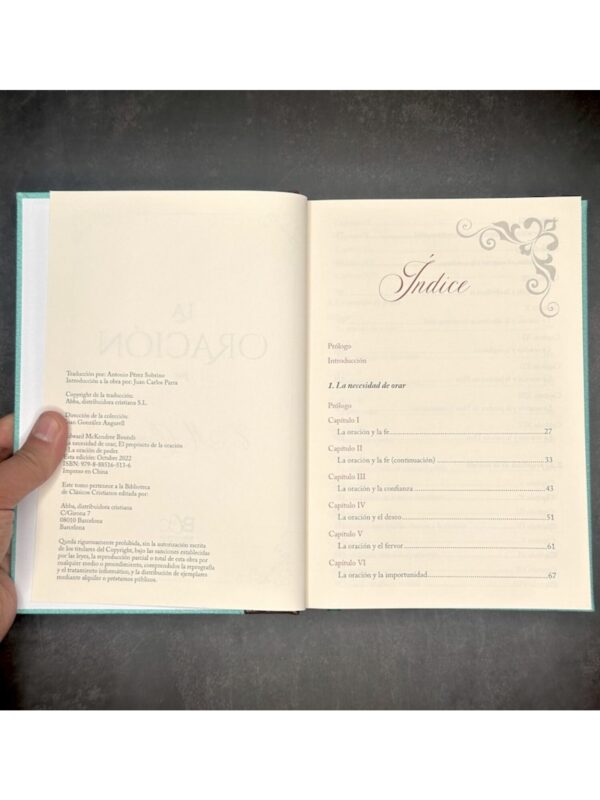 Traducción por: Antonio Pérez Sobrino
Introducción a la obra por: Juan Carlos Parra
Copyright de la traducción:
Abba, distribuidora cristiana S.L.
Dirección de la colección:
Juan González Angurell
Edward McKendree Bounds
La necesidad de orar, El propósito de la oración
La oración de poder
Esta edición: Octubre 2022
Impreso en China
Este tomo pertenece a la Biblioteca
de Clásicos Cristianos editada por:
Abba, distribuidora cristiana
C/Girona 7
08010 Barcelona
Barcelona
Queda rigurosamente prohibida, sin la autorización escrita
de los titulares del Copyright, bajo las sanciones establecidas
por las leyes, la reproducción parcial o total de esta obra por
cualquier medio o procedimiento, comprendidos la reprografía
y el tratamiento informático, y la distribución de ejemplares
mediante alquiler o préstamos públicos.
Índice
Prólogo
Introducción
1. La necesidad de orar
Prólogo
Capítulo I
La oración y la fe 27
Capítulo II
La oración y la fe (continuación) 33
Capítulo III
La oración y la confianza 43
Capítulo IV
La oración y el deseo 51
Capítulo V
La oración y el fervor 61
Capítulo VI
La oración y la importunidad 67
LA
ORACIÓN